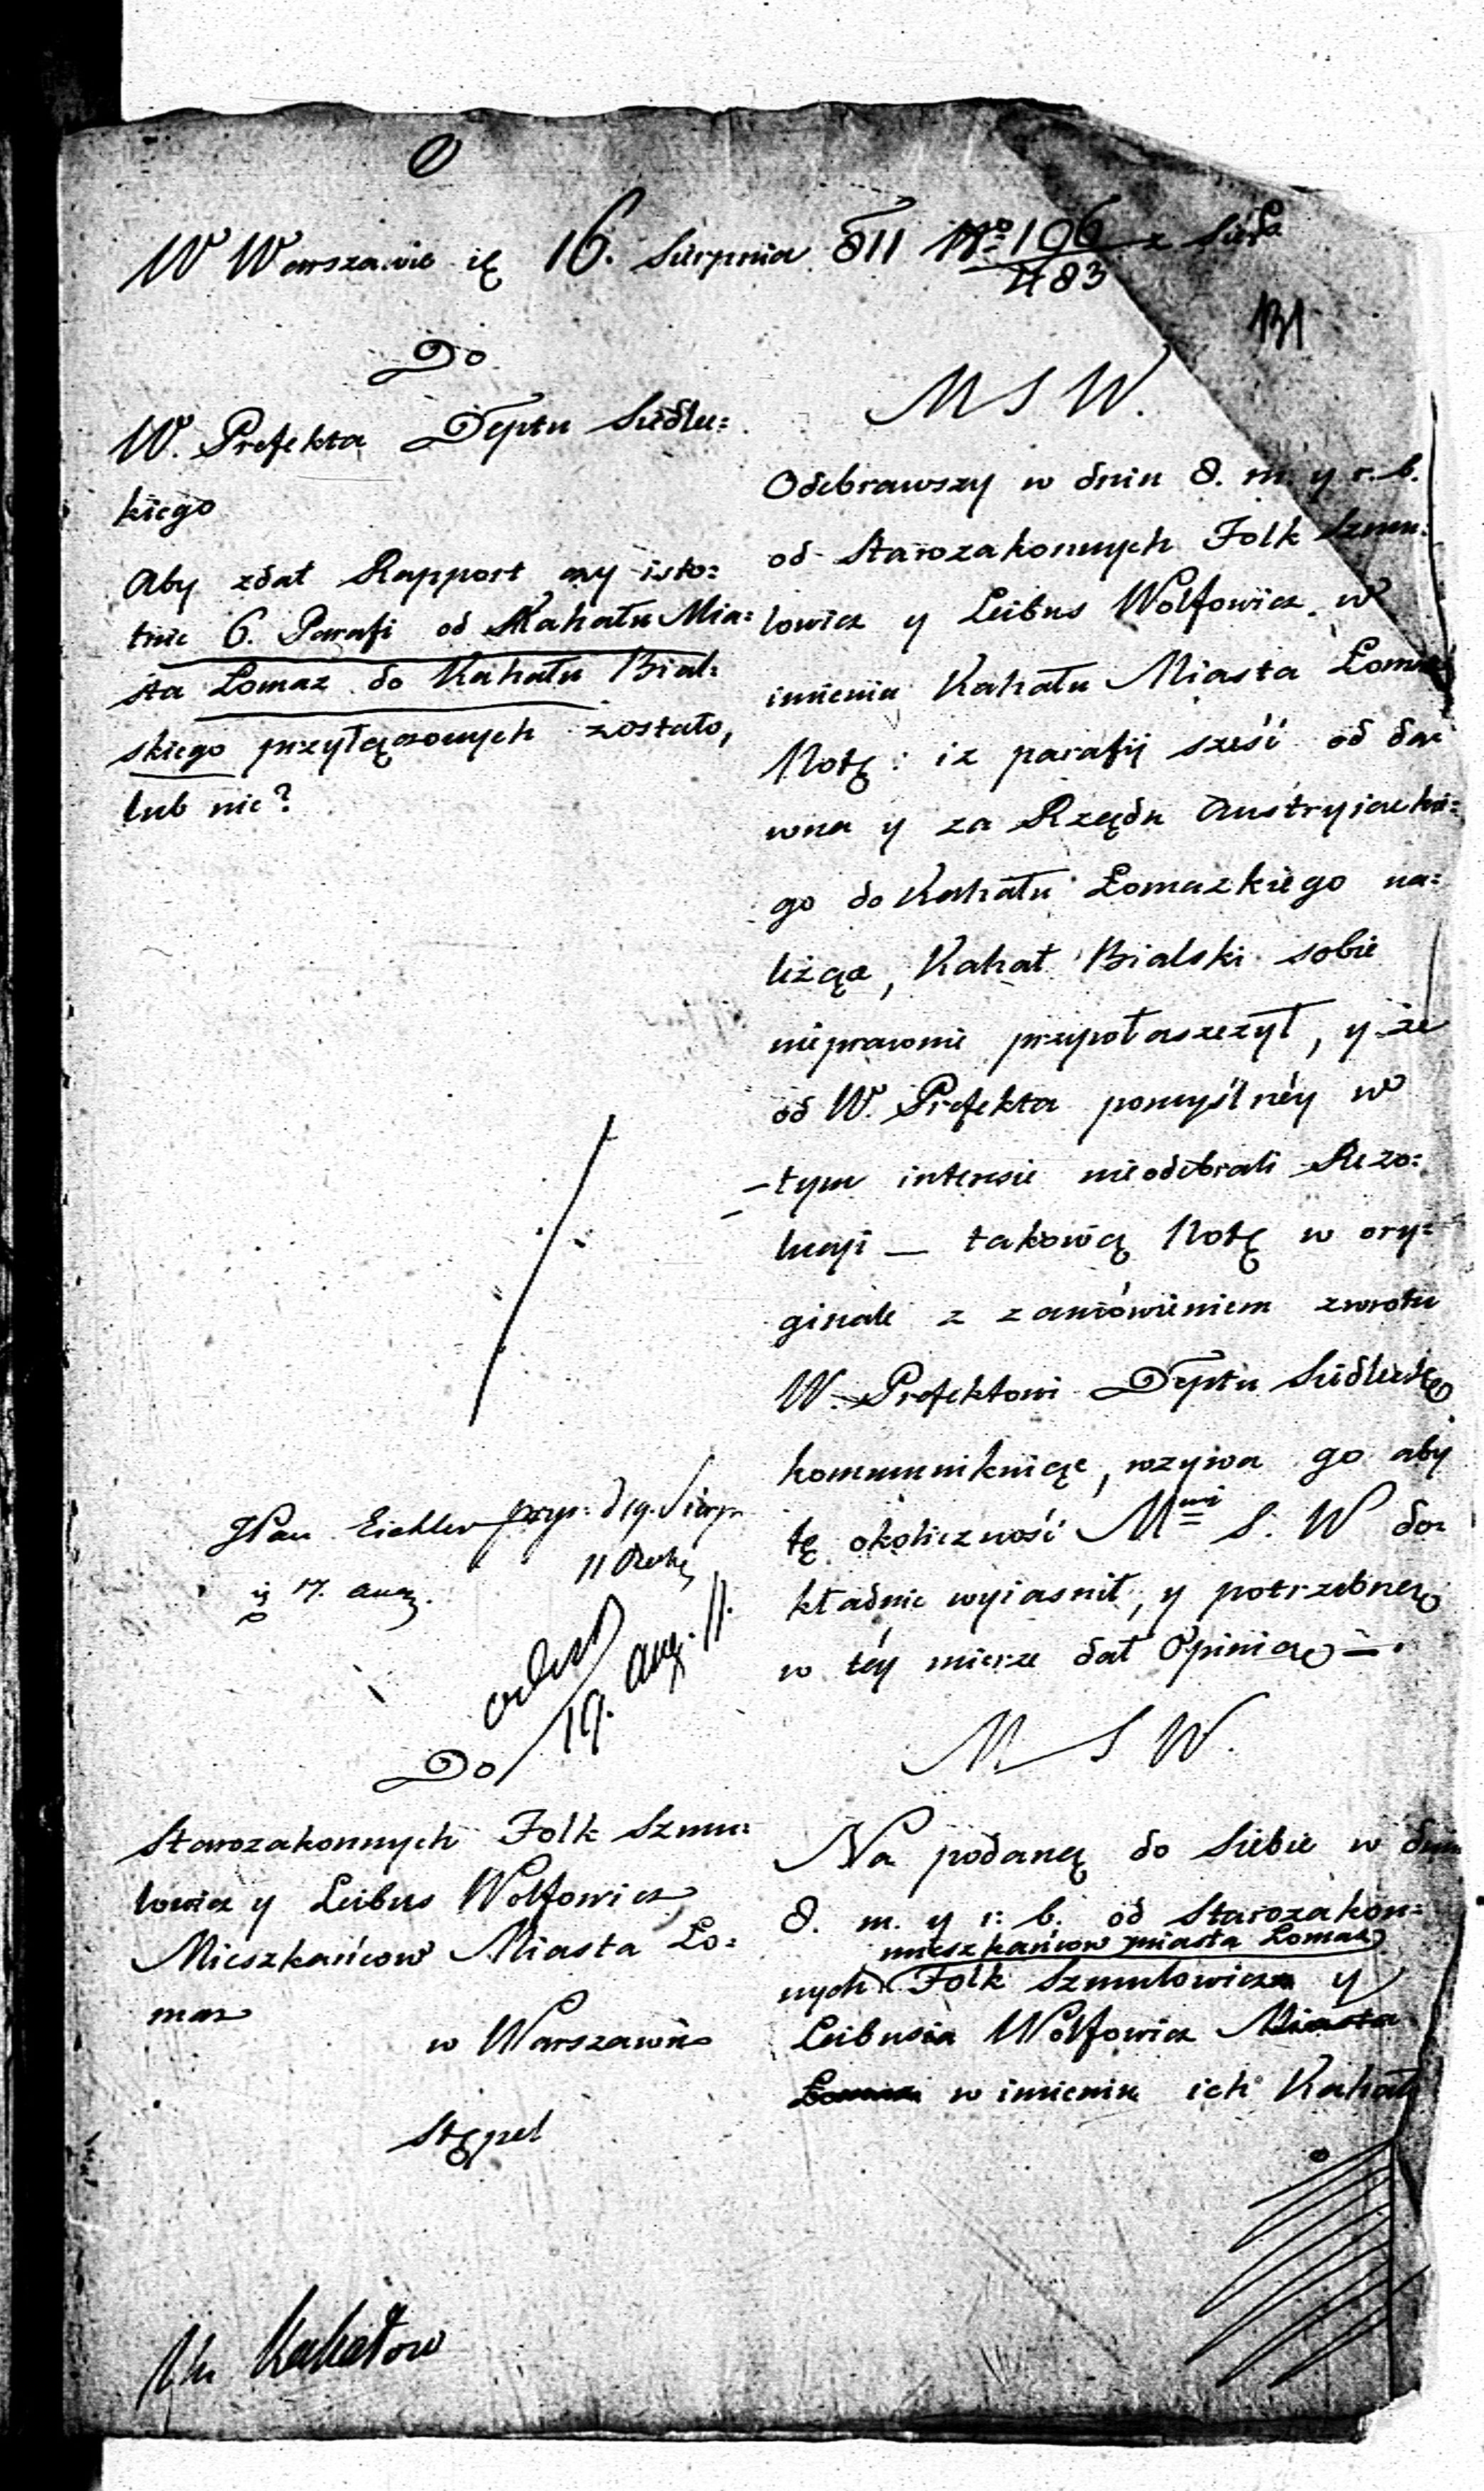 W Warszawie d. 16. Sierpnia 811 No 196 z Sierp.
483
131
Do
W. Prefekta Deptu Siedlec=
kiego
Aby zdał Rapport czy isto=
tnie 6. Parafi od Kahału Mia=
sta Łomaz do Kahału Bial=
skiego przyłączonych zostało,
lub nie?
M S W.
Odebrawszy w dniu 8. m. y r. b.
od Starozakonnych Folk Szmu=
lowicz y Leibus Wolfowicz w
imieniu Kahału Miasta Łomaz
Notę: iż parafij sześć od da=
wna y za Rządu Austryiackie=
go do Kahału Łomazkiego na=
leżące, Kahał Bialski sobie
nieprawnie przywłaszczył, y że
od W. Prefekta pomyślnéy w
tym interesie nieodebrali Rezo=
lucyi — takową Notę w ory=
ginale z zamówieniem zwrotu
W. Prefektowi Deptu Siedleckgo
kommunikuiąc, wzywa go aby
tę okoliczność Mwi S. W do=
kładnie wyiasnił, y potrzebną
w téy mierze dał Opinią —.
JPan Eichler
17. Aug.
przy: d 19. Sierp.
11 Roku
19. Aug. 11.
Do
Starozakonnych Folk Szmu=
lowicz y Leibus Wolfowicz
Mieszkańcow Miasta Ło=
maz
w Warszawie
Stępel
M S W.
Na podaną do Siebie w dniu
8. m. y r. b. od Starozakon=
mieszkańcow miasta Łomaz
nych Folk Szmulowicza y
Leibusia Wolfowicz Miasta
Łomaz w imieniu ich Kahału
Kahałow